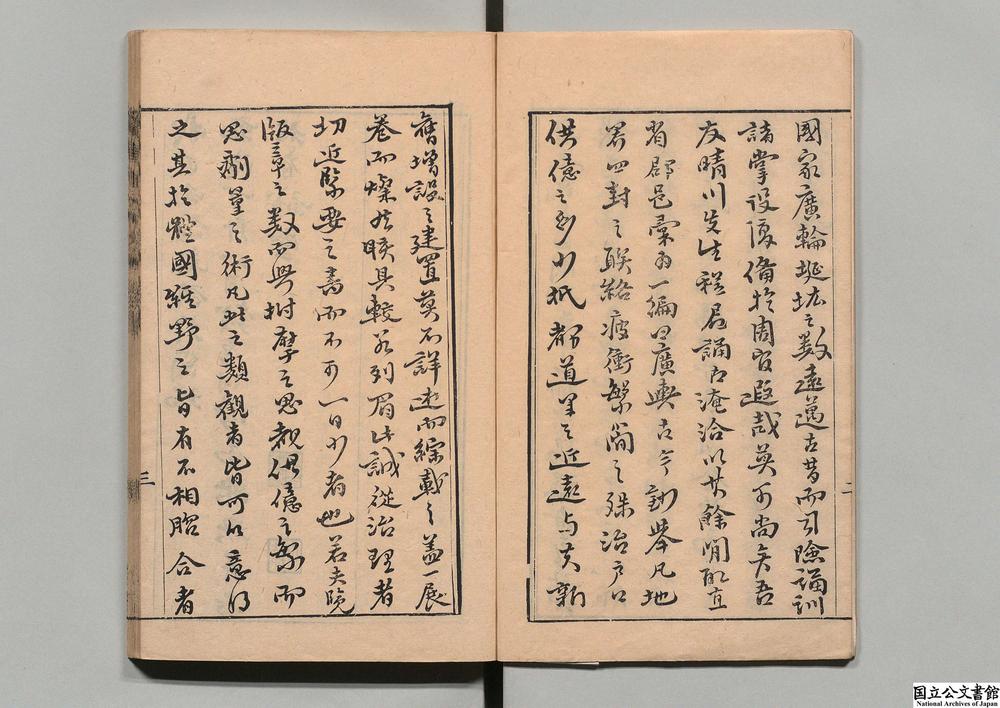 國家廣輪埏垓之數遠邁古昔而司險誦訓
諸掌設復備於周官遐哉莫可尚矣吾
友晴川先生程君誦古淹洽以其餘閒取直
省郡邑彙為一編曰廣輿古今鈔舉凡地
界四封之聯絡疲衝繁簡之殊治戶口
供億之多少抵都道里之近遠与夫新
二
舊增設之建置莫不詳述而綜載之蓋一展
卷而燦然賅具較若列眉此誠從治理者
切近緊要之書而不可一日少者也若夫覽
版章之數而興拊摩之思觀供億之繁而
思劑量之術凡此之類觀者皆可以意得
之其於體國經野之旨有不相脗合者
三
国立公文書館
National Archives of Japan